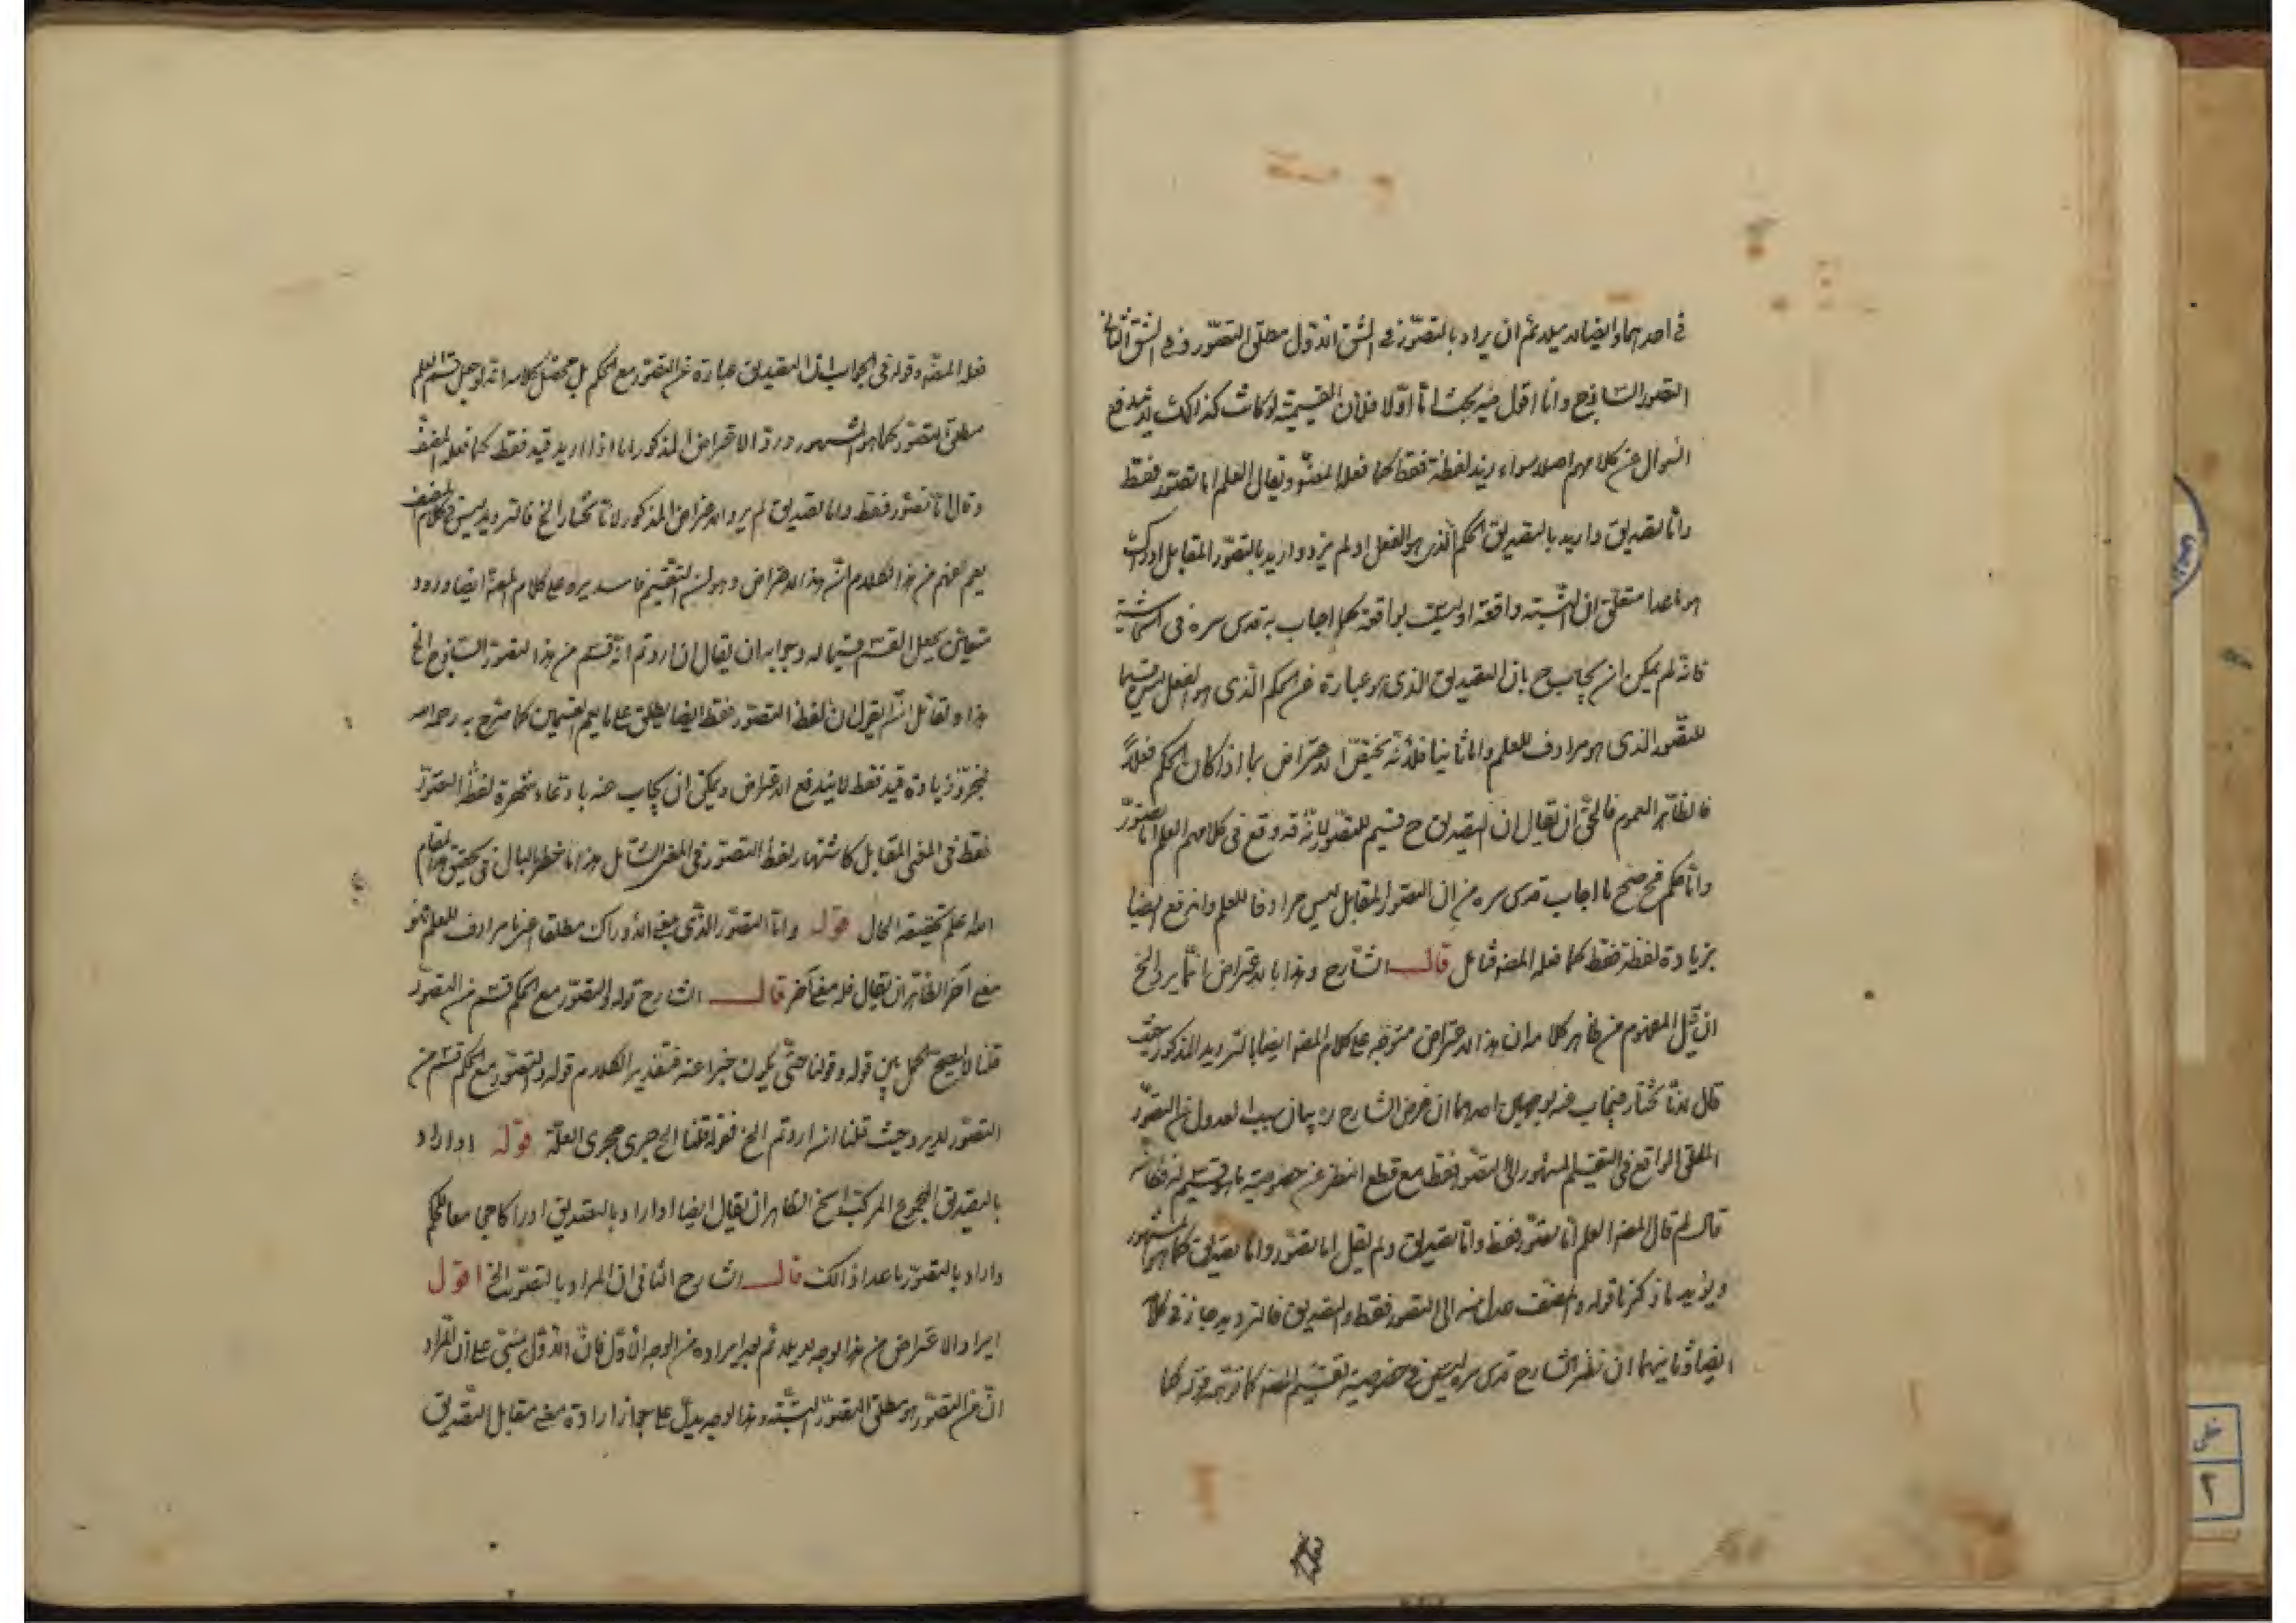 في احدهما وايضا لا يلائم ان يراد بالتصوّر في الشق الاول مطلق التصوّر وفي الشق الثاني
التصور الساذج وانا اقول فيه بحث اما اوّلا فلأن القسمة لو كانت كذلك لا يندفع
السوال عن كلامهم اصلا سواء زيد لفظة فقط كما فعله المصنف ويقال العلم اما تصوّر فقط
واما تصديق واريد بالتصديق الحكم الذي هو الفعل او لم يزد واريد بالتصوّر المقابل ادراك
هو ما عدا متعلق ان النسبة واقعة او ليست بواقعة كما اجاب به قدس سره في الحاشية
فانه لم يمكن ان يجاب ح بان التصديق الذي هو عبارة عن الحكم الذي هو الفعل ليس قسيما
للتصّور الذي هو مرادف للعلم واما ثانيا فلأنه تخيّل الاعتراض بما اذا كان الحكم فعلاً
فالظاهر العموم فالحق ان يقال ان التصديق ح قسيم للتصّور لانّه قد وقع في كلامهم العلم اما تصّور
واما حكم فح صح ما اجاب قدس سره من ان التصور المقابل ليس مرادفا للعلم واندفع ايضا
بزيادة لفظة فقط كما فعله المصنف فتأمل قال الشارح وهذا الاعتراض انّما يرد الخ
ان قيل المفهوم من ظاهر كلامه ان هذا الاعتراض متوجّه على كلام المصنف ايضا بالترديد المذكور حيث
قال لانّا نختار فيجاب عنه بوجهين احدهما ان غرض الشارح ره بيان سبب العدول عن التصّور
المطلق الواقع في التقسيم المشهور الى التصوّر فقط مع قطع النظر عن خصوصية ما هو قسيم له فكانه
قال لم قال المصنف العلم امّا تصوّر فقط وامّا تصديق ولم يقل اما تصوّر واما تصديق كما هو المشهور
ويؤيد ما ذكرنا قوله والمصنف عدل عنه الى التصور فقط والتصديق فالترديد جاز في كلامه
ايضا وثانيهما ان نظر الشارح قدس سره ليس في خصوصية تقسيم المصنف كما توهمه قوله كما
فعله المصنّف وقوله في الجواب لانّ التصديق عبارة عن التصوّر مع الحكم بل محصّل كلامه انه لو جعل قسم العلم
مطلق التصوّر كما هو المشهور ورد الاعتراض المذكور اما اذا اريد قيد فقط كما فعله المصنّف
وقال امّا تصوّر فقط واما تصديق لم يرد الاعتراض المذكور لانّا نختار الخ فالترديد ليس في كلام المصنف
يعم يفهم من هذا الكلام انّ هذا الاعتراض وهو ان التقسيم فاسد يرد على كلام المصنف ايضا ورود
شيئين بجعل القسم قسيما له وجوابه ان يقال ان اردتم انّه قسم من هذا التصوّر الساذج الخ
هذا ولقائل ان يقول ان لفظ التصوّر فقط ايضا يطلق على ما يعم القسمين كما صرّح به رحمه الله
فبمجرّد زيادة قيد فقط لا يندفع الاعتراض ويمكن ان يجاب عنه بادّعاء شهرة لفظ التصوّر
فقط في المعنى المقابل كاشتهار لفظ التصوّر في المعنى الشامل هذا ما خطر بالبال في تحقيق هذا المقام
الله اعلم بحقيقة الحال قوله وامّا التصوّر الذّي بمعنى الادراك مطلقا اعني ما مرادف للعلم فهو
معنى آخر الظاهر ان يقال فله معنى آخر قال الشارح قوله والتصوّر مع الحكم قسم من التصوّر
قلنا لا يصح الحمل بين قوله وقولنا حتّى يكون خبرا عنه فتقدير الكلام قوله والتصّور مع الحكم قسم من
التصوّر لا يرد حيث قلنا ان اردتم الخ فقوله قلنا الخ جرى مجرى العلّة قوله او اراد
بالتصديق المجموع المركب الخ الظاهر ان يقال ايضا او اراد بالتصديق ادراكا جامعا للحكم
واراد بالتصوّر ما عدا ذلك قال الشارح الثاني ان المراد بالتصوّر الخ اقول
ايراد الاعتراض من هذا الوجه لا يلائم بعد ايراده من الوجه الاوّل فانّ الاوّل مبنيّ على ان المراد
انّ من التصوّر هو مطلق التصوّر البتّه وهذا الوجه يدلّ على جواز ارادة معنى مقابل التصديق